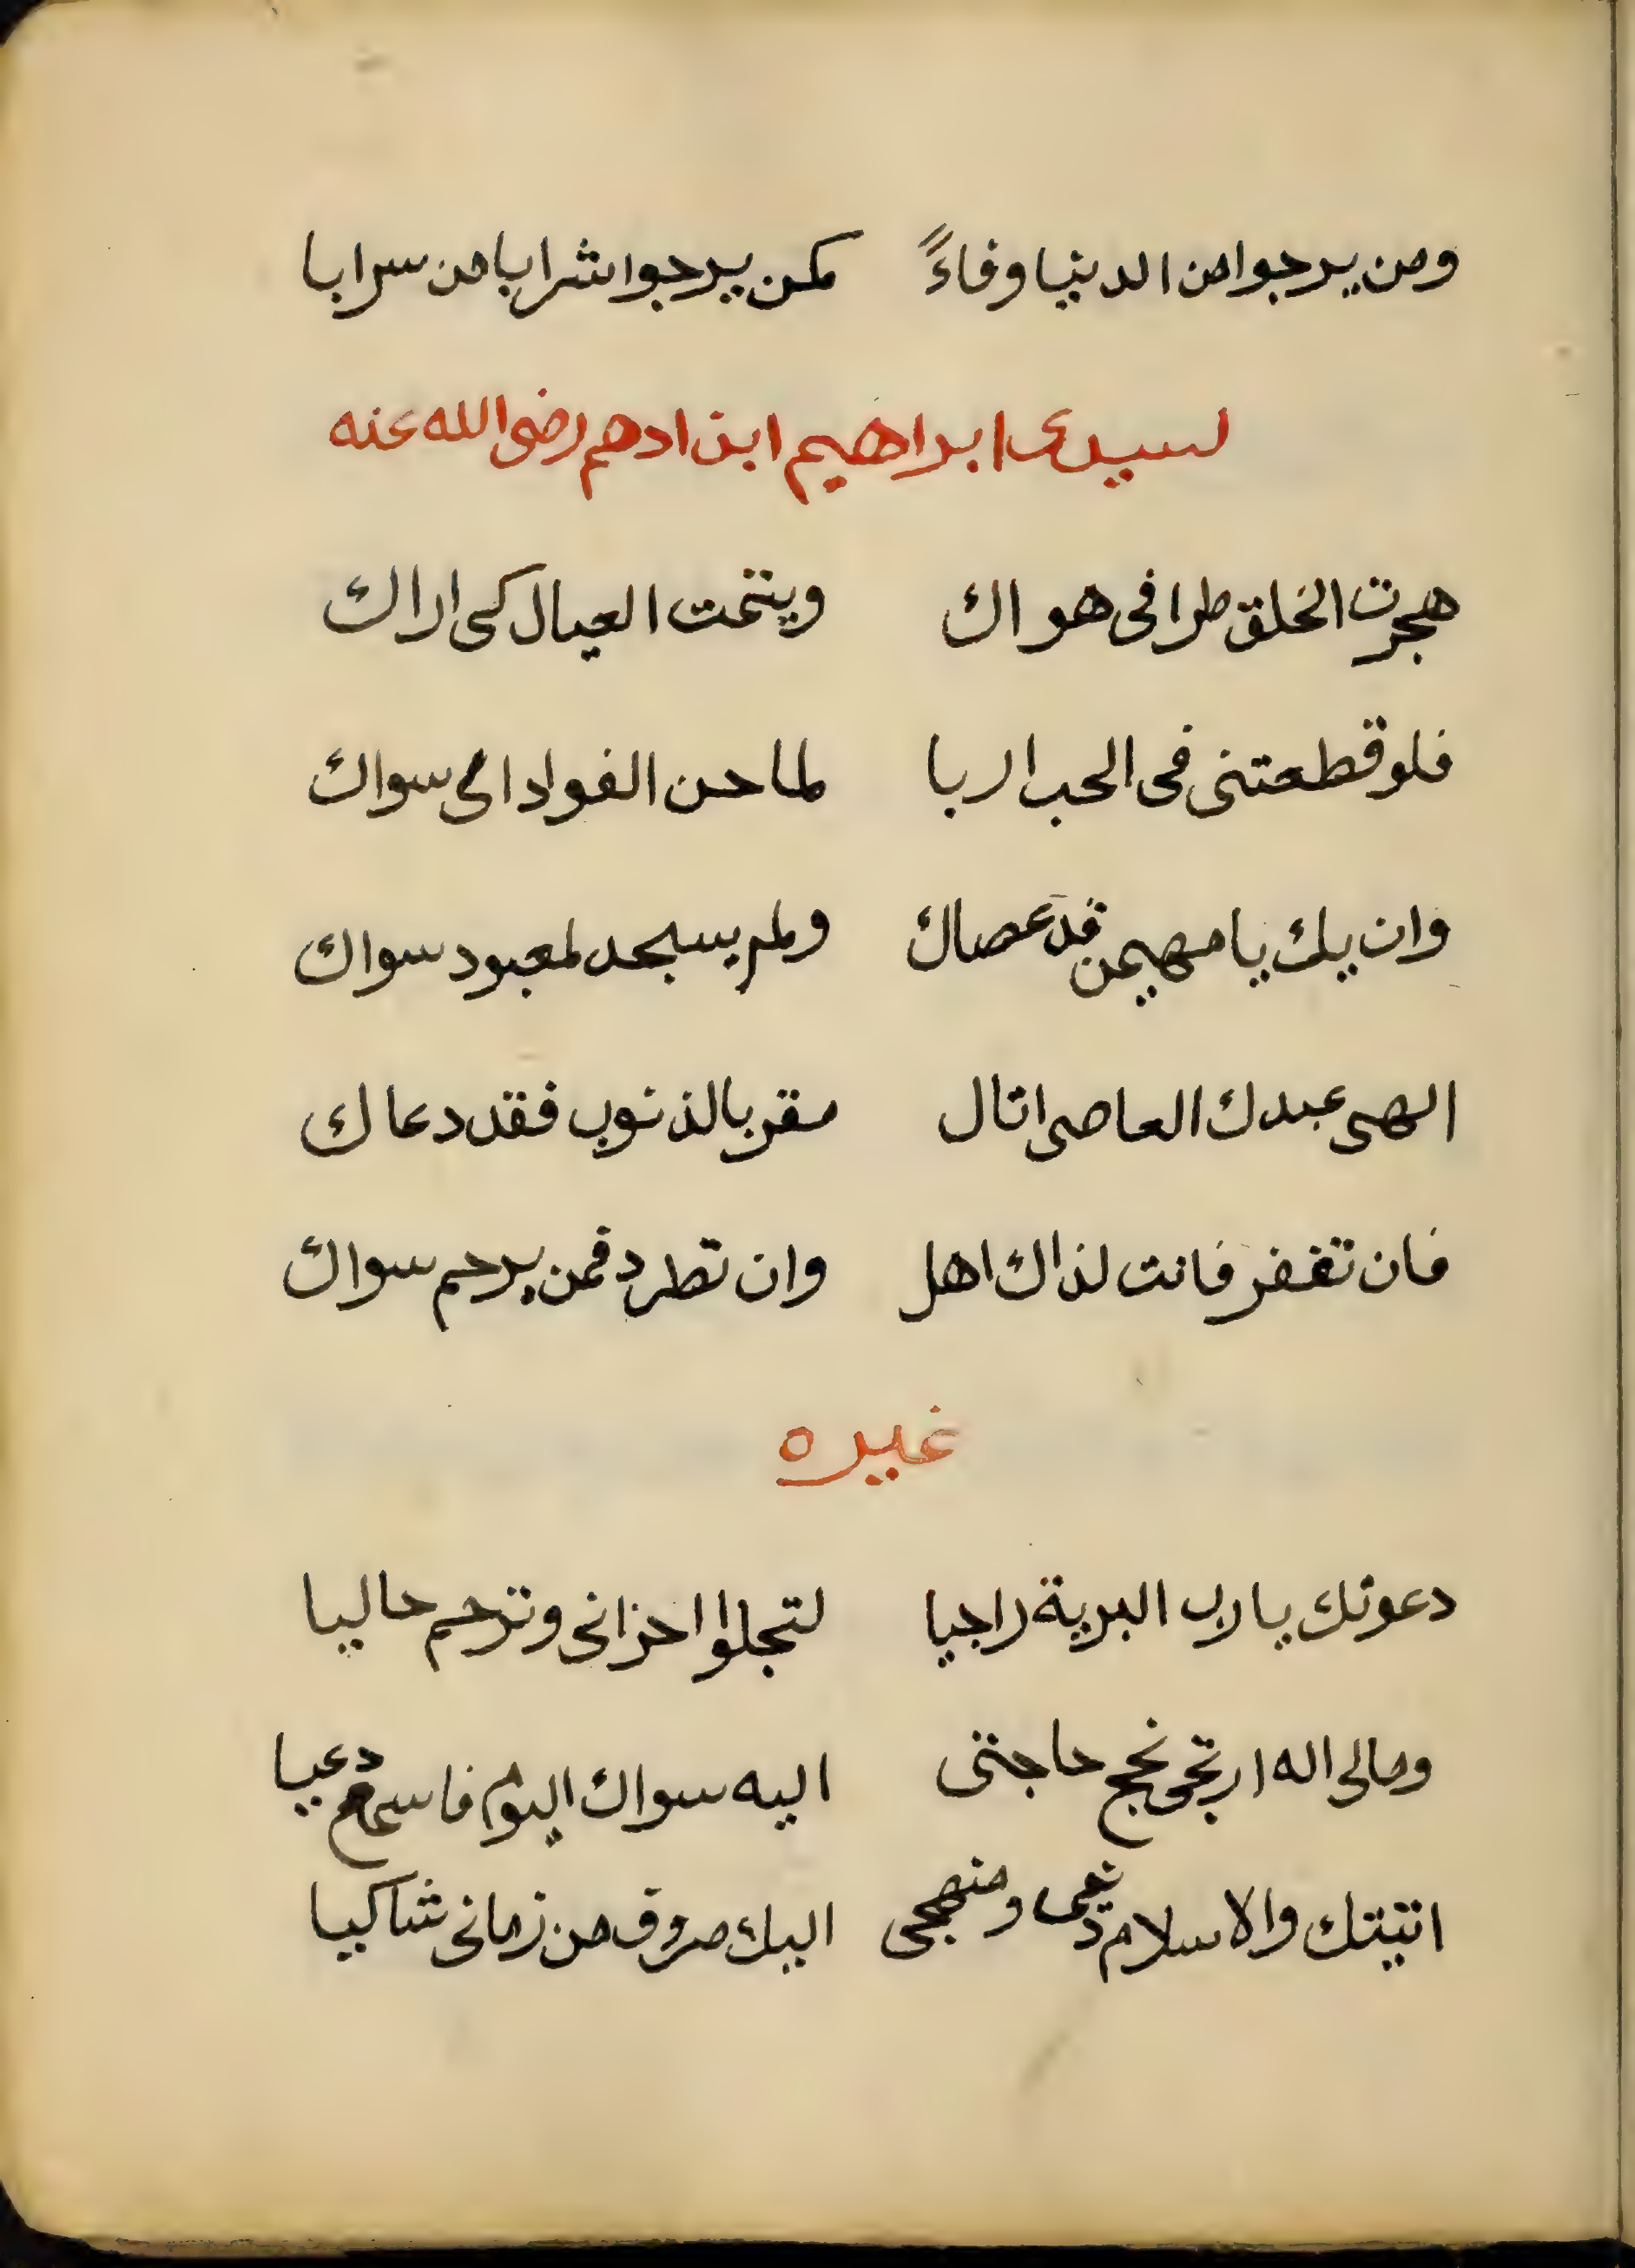 ومن يرجوا من الدنيا وفاءً كمن يرجوا شرابا من سرابا
لسيدى ابراهيم ابن ادهم رضى الله عنه
هجرت الخلق طرا فى هواك ويتمت العيال كى اراك
فلو قطعتنى فى الحب اربا لما حن الفواد الى سواك
وان يك يا مهيمن قد عصاك ولم يسجد لمعبود سواك
الهى عبدك العاصى اتاك مقر بالذنوب فقد دعاك
فان تغفر فانت لذاك اهل وان تطرد فمن يرحم سواك
غيره
دعوتك يا رب البرية راجيا لتجلوا احزانى وترحم حاليا
ومالى اله ارتجى نجح حاجتى اليه سواك اليوم فاسمع دعيا
اتيتك والاسلام دينى ومنهجى اليك صروف من زمانى شاكيا